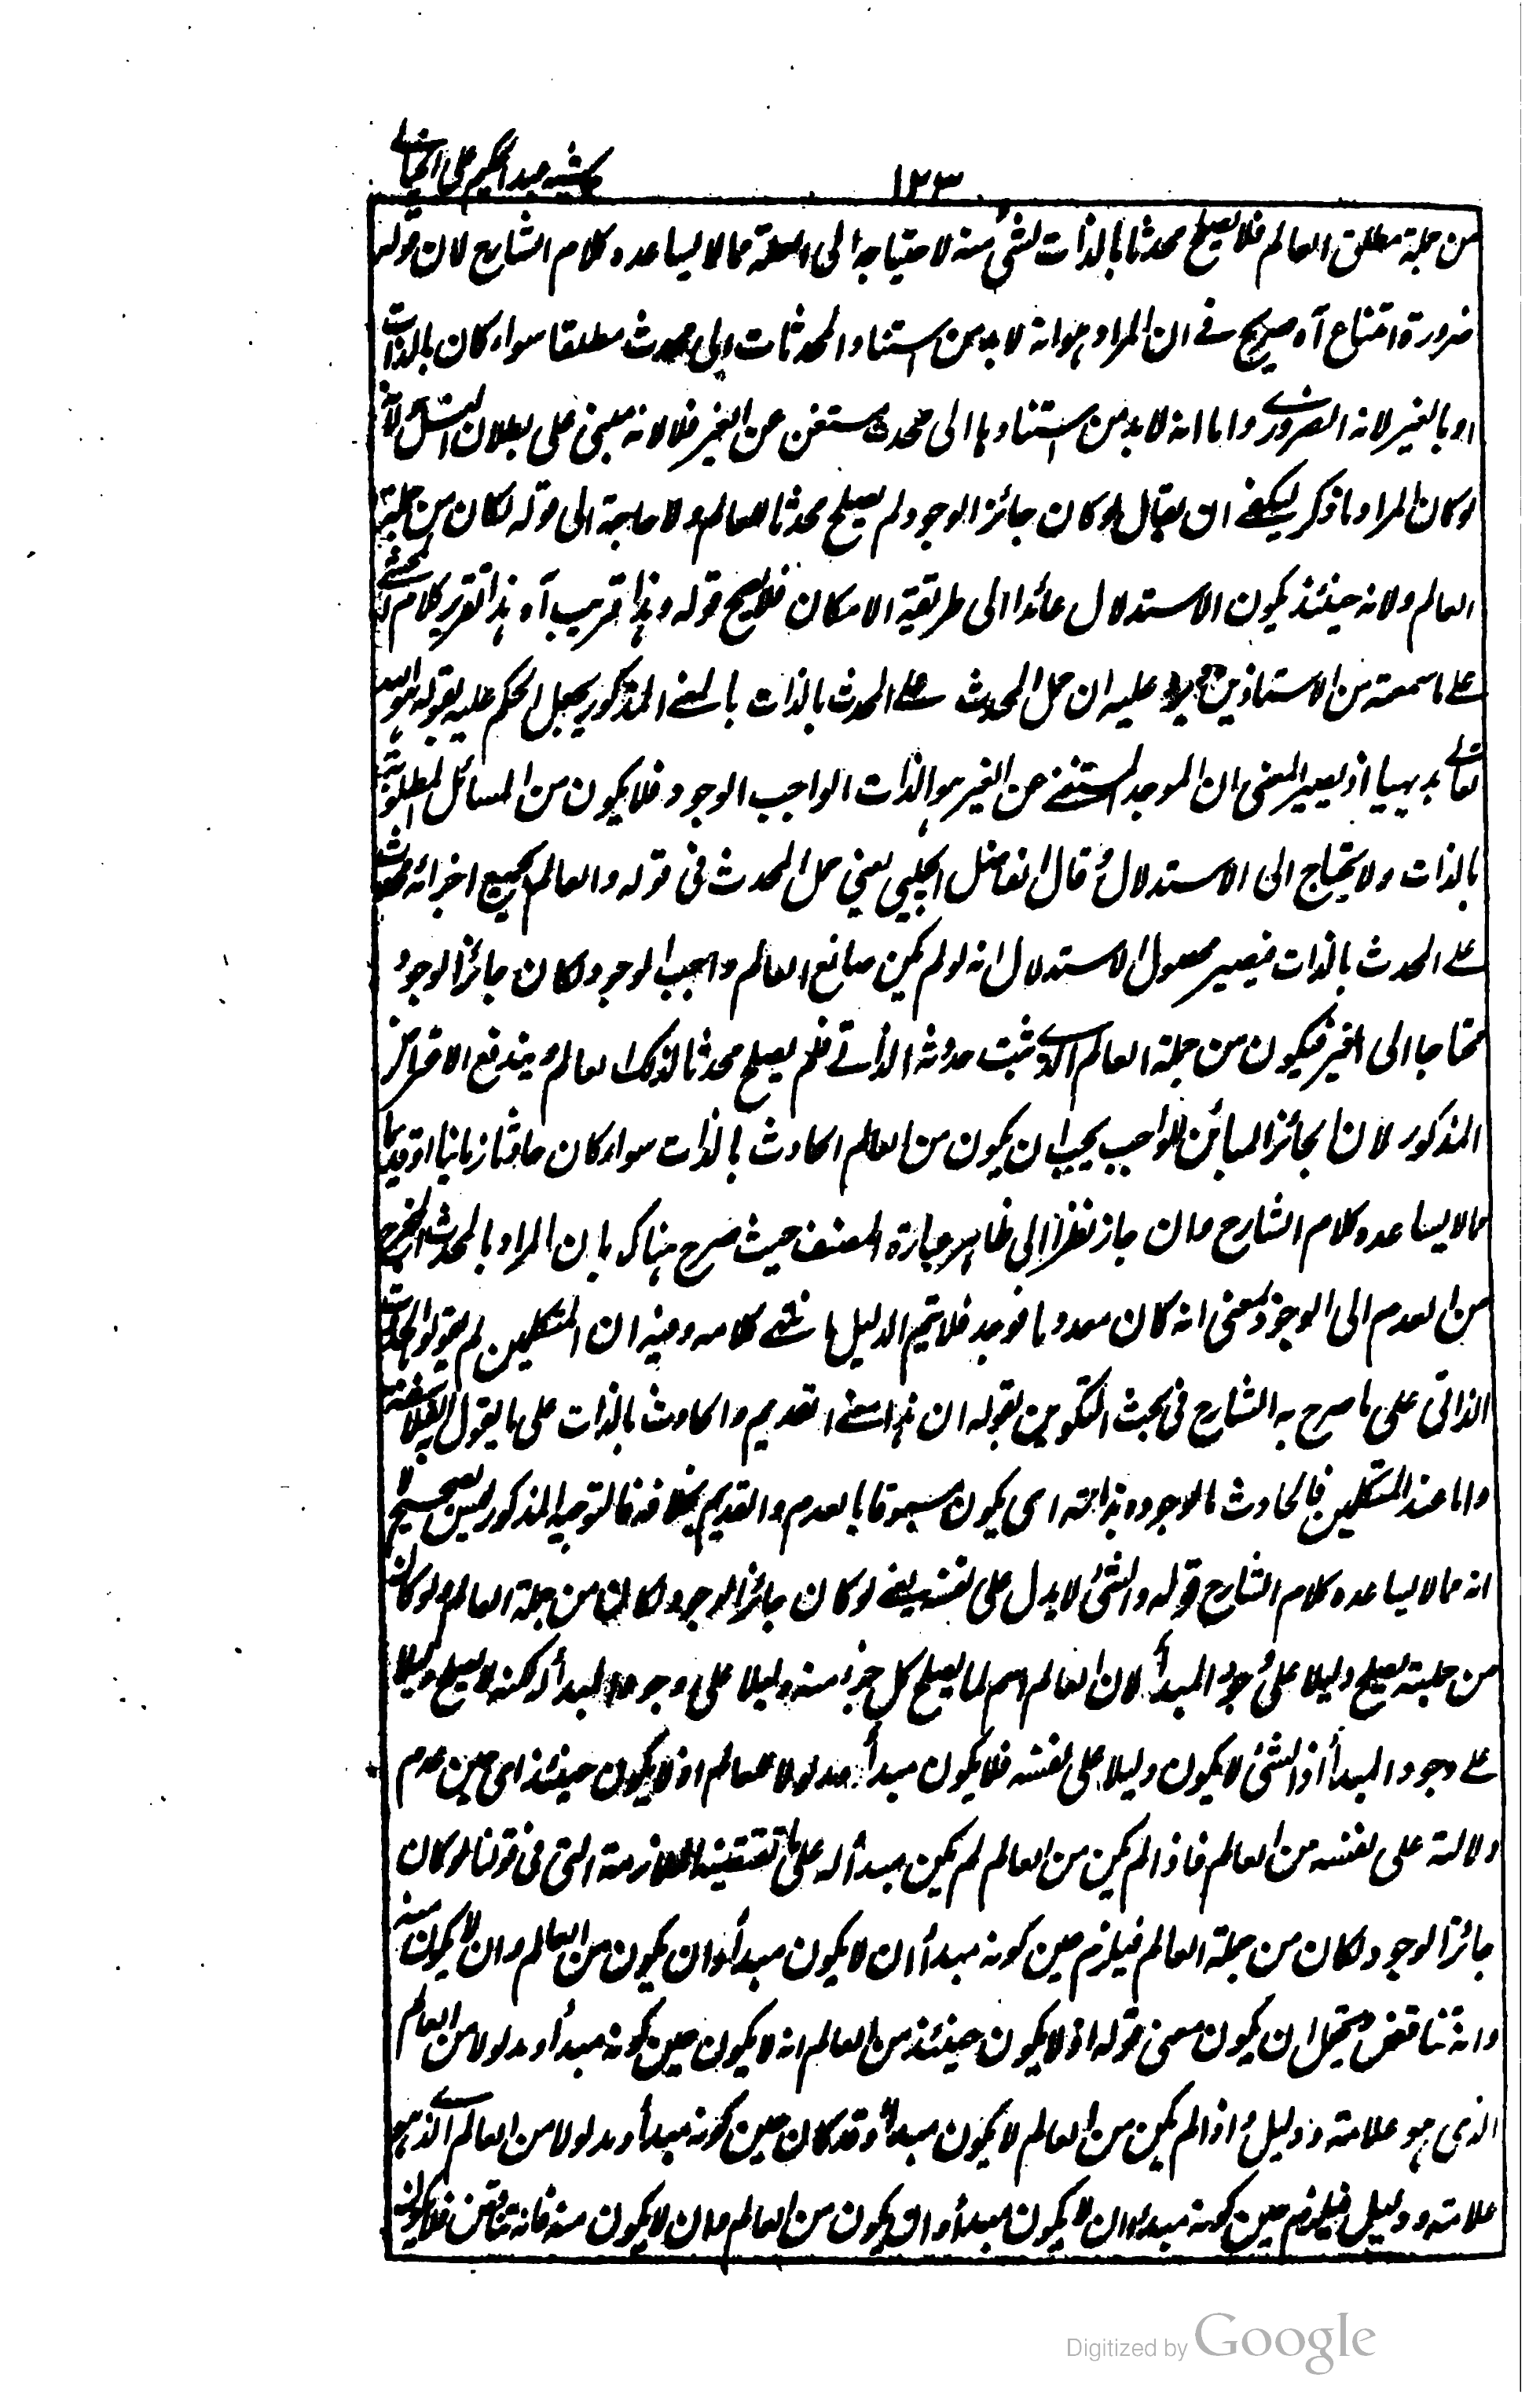 ١٢٣
حاشيه عبد الحكيم على الخيالي
من جملة مطلق العالم فلا يصلح محدثا بالذات لشئ منه لاحتياجه الى العلة مما لا يساعده كلام الشارح لان قوله
ضرورة امتناع آه صريح في ان المراد هو انه لا بد من استناد المحدثات الى محدث مطلقا سواء كان بالذات
او بالغير لانه الضروري واما انه لا بد من استنادها الى محدث مستغن عن الغير فلا لانه مبنى على بطلان التسلسل ولانه
لو كان المراد ما ذكر ليكفي ان يقال لو كان جائز الوجود لم يصلح محدثا للعالم ولا حاجة الى قوله لكان من جملة
العالم ولانه حينئذ يكون الاستدلال عائدا الى طريقة الامكان فلا يصح قوله وهذا قريب آه هذا تقرير كلام المحشي
على ما سمعته من الاستاذين يرد عليه ان حمل المحدث على المحدث بالذات بالمعنى المذكور يجعل الحكم عليه بقوله هو الله
تعالى بديهيا اذ يصير المعنى ان الموجد المستغنى عن الغير هو الذات الواجب الوجود فلا يكون من المسائل المطلوبة
بالذات ولا يحتاج الى الاستدلال قال الفاضل الجلپي يعني حمل المحدث في قوله والعالم بجميع اجزائه محدث
على المحدث بالذات فيصير محصول الاستدلال انه لو لم يكن صانع العالم واجب الوجود لكان جائز الوجود
محتاجا الى الغير فيكون من جملة العالم الذي ثبت حدوثه الذاتي فلم يصلح محدثا لذلك العالم ويندفع الاعتراض
المذكور لان الجائز المبائن للواجب يجب ان يكون من العالم الحادث بالذات سواء كان حادثا زمانيا او قديما
مما لا يساعده كلام الشارح وان جاز نظرا الى ظاهر عبارة المصنف حيث صرح هناك بان المراد بالمحدث المخرج
من العدم الى الوجود بمعنى انه كان معدوما فوجد فلا يتم الدليل انتهى كلامه وفيه ان المتكلمين لم يقولوا بالحدوث
الذاتي على ما صرح به الشارح في بحث التكوين بقوله ان هذا معنى القديم والحادث بالذات على ما يقول به الفلاسفة
واما عند المتكلمين فالحادث ما لوجوده بداية اى يكون مسبوقا بالعدم والقديم بخلافه فالتوجيه المذكور ليس بصحيح لا
انه مما لا يساعده كلام الشارح قوله والشئ لا يدل على نفسه يعني لو كان جائز الوجود لكان من جملة العالم ولو كان
من جملته يصلح دليلا على وجود المبدأ لان العالم اسم لما يصلح كل جزء منه دليلا على وجود المبدأ له لكنه لا يصلح دليلا
على وجود المبدأ اذ الشئ لا يكون دليلا على نفسه فلا يكون مبدأ مدلولا للعالم اذ لا يكون حينئذ اى حين عدم
دلالته على نفسه من العالم فاذا لم يكن من العالم لم يكن مبدأ له على ما تقتضيه الملازمة التي في قولنا لو كان
جائز الوجود لكان من جملة العالم فيلزم حين كونه مبدأ ان لا يكون مبدأ وان يكون من العالم وان لا يكون منه
وانه تناقض ويحتمل ان يكون معنى قوله اذ لا يكون حينئذ من العالم انه لا يكون حين كونه مبدأ ومدلولا من العالم
الذى هو علامة ودليل واذا لم يكن من العالم لا يكون مبدأ وقد كان حين كونه مبدأ ومدلولا من العالم الذى هو
علامته ودليل فيلزم حين كونه مبدأ ان لا يكون مبدأ وان يكون من العالم وان لا يكون منه فانه تناقض فلا يكون
Digitized by Google